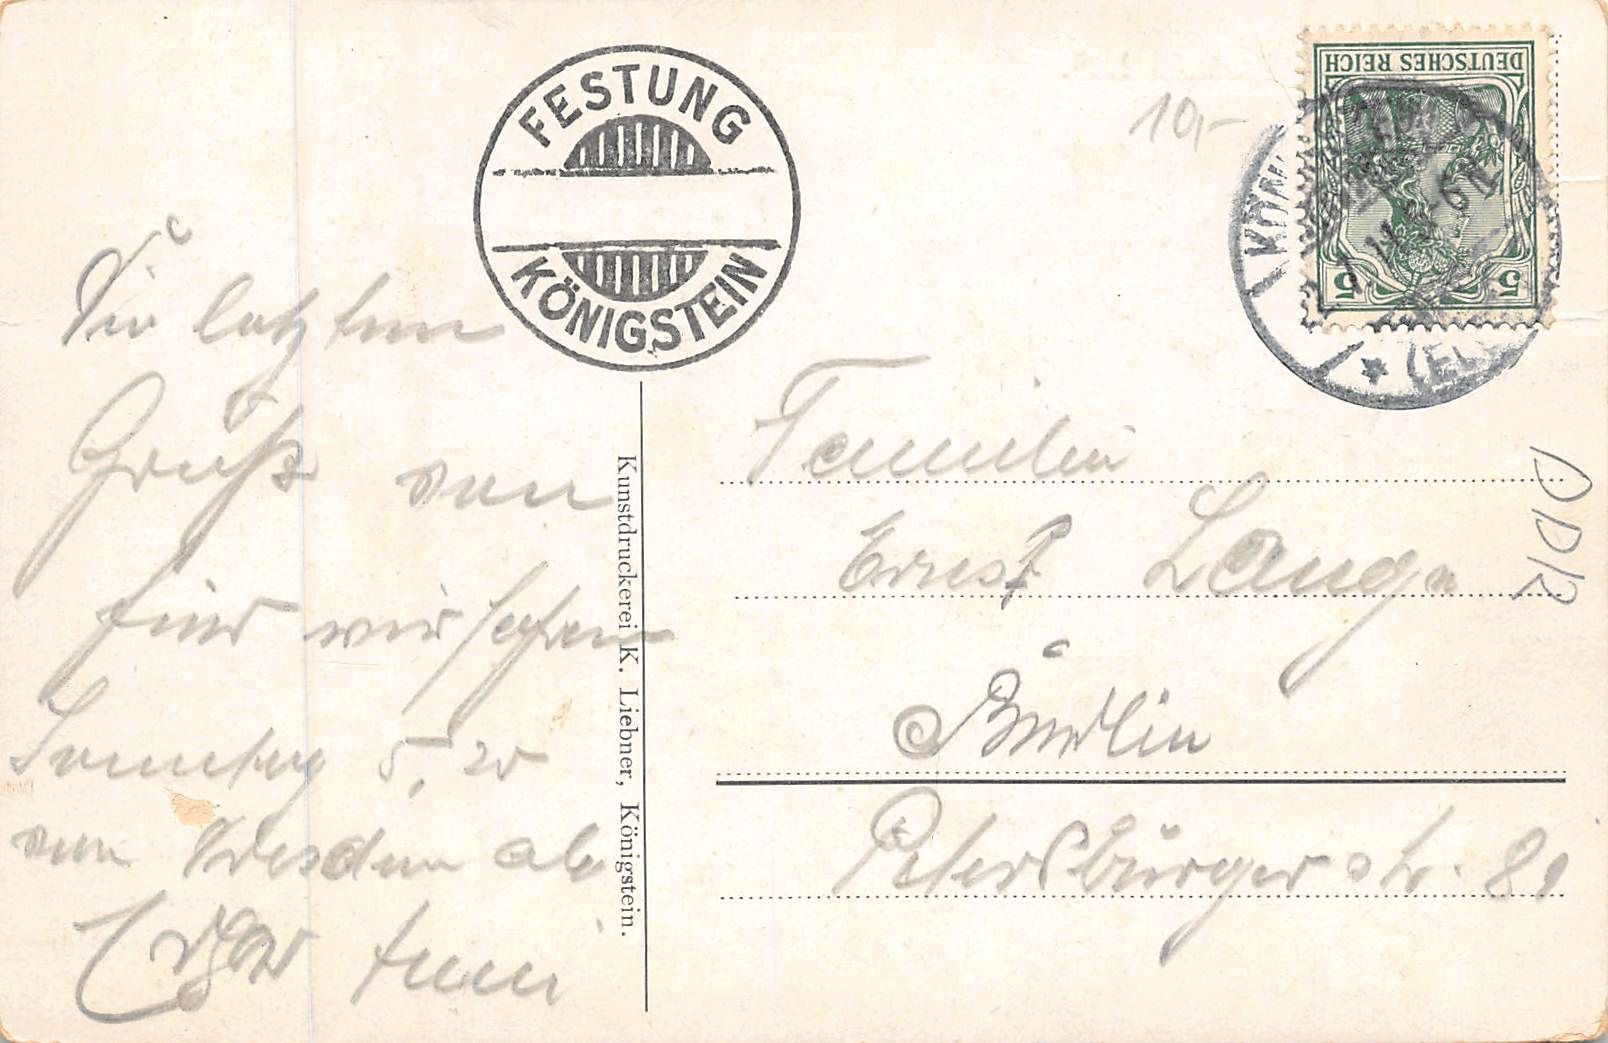 FESTUNG
KÖNIGSTEIN
10,-
DEUTSCHES REICH
5 5
KÖN
(EL
Die letzten
Gruß von
hier wir fahren
Sonntag 5.20
von Dresden ab
Kunstdruckerei K. Liebner, Königstein.
Familie
Ernst Lange
Berlin
Petersburger str. 81
DD12